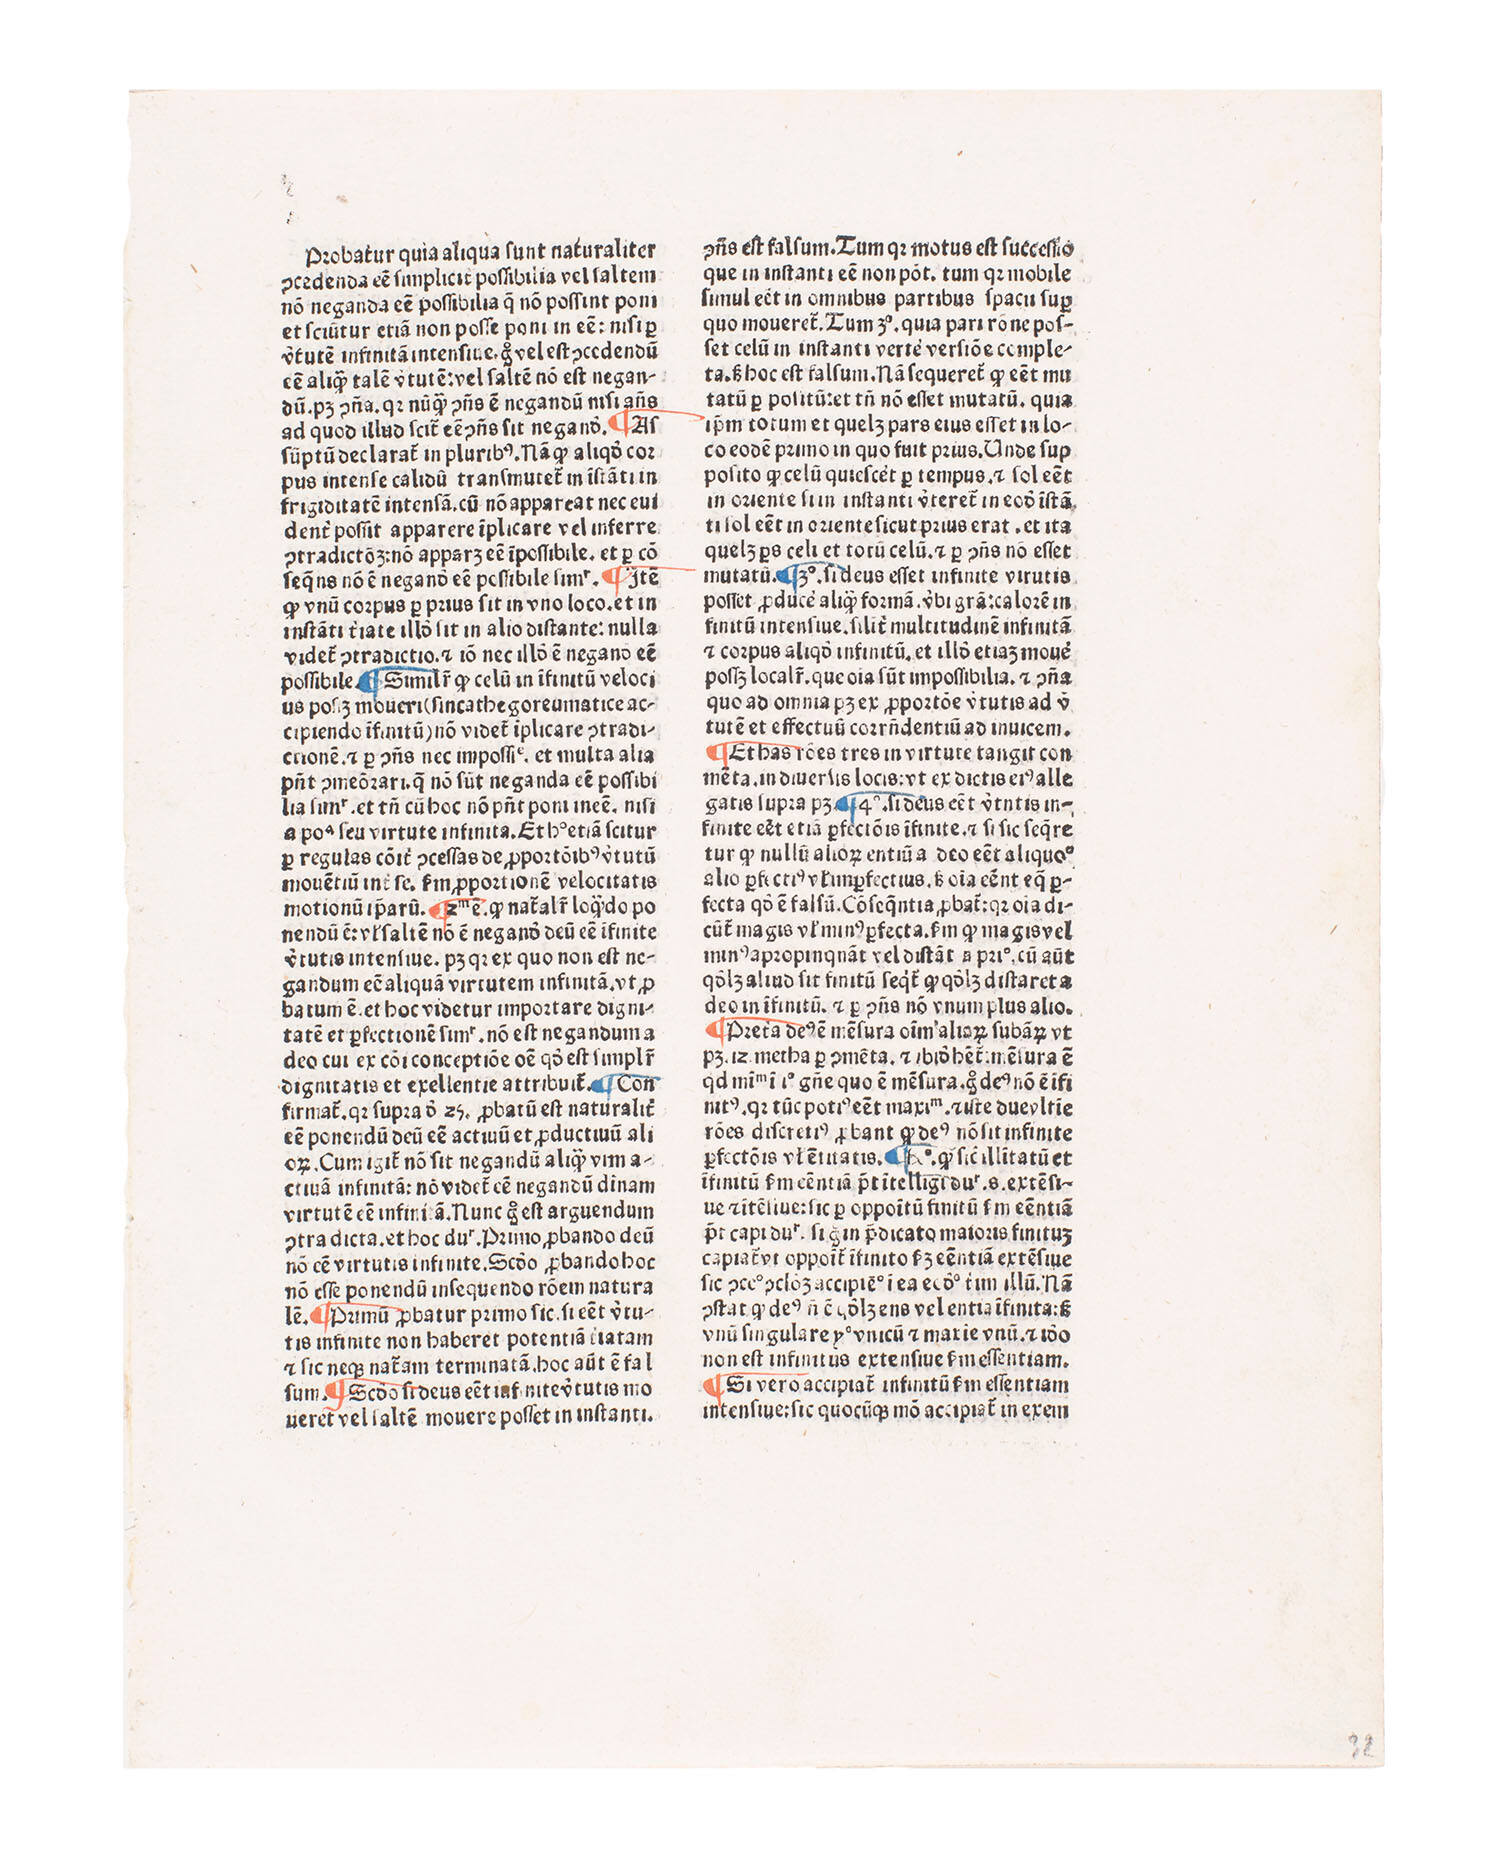 Probatur quia aliqua sunt naturaliter
ꝯcedenda eē simplicit̄ possibilia vel saltem
nō neganda eē possibilia q̄ nō possint poni
et sciūtur etiā non posse poni in eē: nisi ꝑ
v̄tutē infinitā intensiue. gͦ vel est ꝯcedendū
eē aliq̄ talē v̄tutē: vel saltē nō est negan-
dū. pꝫ ꝯn̄a. qꝛ nūq̄ ꝯn̄s ē negandū nisi an̄s
ad quod illud scit̄ eē ꝯn̄s sit negand̓. ¶ As
sūptū declarat̄ in pluribꝰ. Nā ꝙ aliqd̓ cor
pus intense calidū transmutet̄ in īstāti in
frigiditatē intensā. cū nō appareat nec eui
dent̄ possit apparere īplicare vel inferre
ꝯtradictōꝫ: nō apparꝫ eē īpossibile. et ꝑ cō
seq̄ns nō ē negand̓ eē possibile simʳ. ¶ Itē
ꝙ vnū corpus ꝑ prius sit in vno loco. et in
instāti t̄iate illd̓ sit in alio distante: nulla
videt̄ ꝯtradictio. ⁊ iō nec illd̓ ē negand̓ eē
possibile. ¶ Similr̄ ꝙ celū in īfinitū veloci
us possꝫ moueri (sincathegoreumatice ac-
cipiendo īfinitū) nō videt̄ īplicare ꝯtradi-
ctionē. ⁊ ꝑ ꝯn̄s nec impossiᵉ. et multa alia
pn̄t ꝯmeōrari. q̄ nō sūt neganda eē possibi
lia simʳ. et tn̄ cū hoc nō pn̄t poni in eē. nisi
a poᵃ seu virtute infinita. Et hᵒ etiā scitur
ꝑ regulas cōit̄ ꝯcessas de ꝓportōibꝰ v̄tutū
mouētiū int̄ se. ẜm ꝓportionē velocitatis
motionū ip̄arū. ¶ 2ᵐ ē. ꝙ nat̄alr̄ loq̄do po
nendū ē: vl̄ saltē nō ē negand̓ deū eē īfinite
v̄tutis intensiue. pꝫ qꝛ ex quo non est ne-
gandum eē aliquā virtutem infinitā. vt ꝓ
batum ē. et hoc videtur importare digni-
tatē et ꝑfectionē simʳ. nō est negandum a
deo cui ex cōi conceptiōe oē qd̓ est simplr̄
dignitatis et exellentie attribuit̄. ¶ Con
firmat̄. qꝛ supra d̓ 25. ꝓbatū est naturalit̄
eē ponendū deū eē actiuū et ꝓductiuū ali
oꝝ. Cum igit̄ nō sit negandū aliq̄ vim a-
ctiuā infinitā: nō videt̄ eē negandū diuinam
virtutē eē infinitā. Nunc gͦ est arguendum
ꝯtra dicta. et hoc duʳ. Primo ꝓbando deū
nō eē virtutis infinite. Scd̓o ꝓbando hoc
nō esse ponendū insequendo rōem natura
lē. ¶ Primū ꝓbatur primo sic. si eēt v̄tu-
tis infinite non haberet potentiā
⁊ sic neqꝫ nat̄am terminatā. hoc aūt ē fal
sum. ¶ Scd̓o si deus eēt infinite v̄tutis mo
ueret vel saltē mouere posset in instanti.
ꝯn̄s est falsum. Tum qꝛ motus est successio
que in instanti eē non pōt. tum qꝛ mobile
simul eēt in omnibus partibus spacii suꝑ
quo moueret̄. Tum 3ᵒ. quia pari rōne pos-
set celū in instanti verte̓ versiōe comple-
ta. ẜ hoc est falsum. Nā sequeret̄ ꝙ eēt mu
tatū ꝑ positū: et tn̄ nō esset mutatū. quia
ip̄m totum et quelꝫ pars eius esset in lo-
co eodē primo in quo fuit prius. Unde sup
posito ꝙ celū quiesce̓t ꝑ tempus. ⁊ sol eēt
in oriente si in instanti v̄teret̄ in eod̓ īstā
ti sol eēt in oriente sicut prius erat. et ita
quelꝫ ps celi et totū celū. ⁊ ꝑ ꝯn̄s nō esset
mutatū. ¶ 3ᵒ. si deus esset infinite virutis
posset ꝓduce̓ aliq̄ formā. v̄bi grā: calorē in
finitū intensiue. silit̄ multitudinē infinitā
⁊ corpus aliqd̓ infinitū. et illd̓ etiaꝫ moue̓
possꝫ localr̄. que oīa sūt impossibilia. ⁊ ꝯn̄a
quo ad omnia pꝫ ex ꝓportōe v̄tutis ad v̄
tutē et effectuū corrn̄dentiū ad inuicem.
¶ Et has rōes tres in virtute tangit con
mēta. in diuersis locis: vt ex dictis eiꝰ alle
gatis supra pꝫ. ¶ 4ᵒ. si deus eēt v̄tutis in-
finite eēt etiā ꝑfectōis īfinite. ⁊ si sic seq̄re
tur ꝙ nullū alioꝝ entiū a deo eēt aliquoᵒ
alio ꝑfectiꝰ vl̄ imperfectius. ẜ oīa eēnt eq̄ ꝑ-
fecta qd̓ ē falsū. Cōseq̄ntia ꝓbat̄: qꝛ oīa di-
cūt̄ magis vl̄ minꝰ ꝑfecta. ẜm ꝙ magis vel
minꝰ apropinquāt vel distāt a priᵒ. cū aūt
qd̓lꝫ aliud sit finitū seqt̄ ꝙ qd̓lꝫ distaret a
deo in īfinitū. ⁊ ꝑ ꝯn̄s nō vnum plus alio.
¶ Pret̄a deꝰ ē mēsura oīm alioꝝ subaꝝ vt
pꝫ. 12. metha ꝑ ꝯmēta. ⁊ ibid̓ het̄: mēsura ē
qd miᵐ ī iᵒ gn̄e quo ē mēsura. gͦ deꝰ nō ē īfi
nitꝰ. qꝛ tūc potiꝰ eēt maxiᵐ. ⁊ iste due vltīe
rōes discretiꝰ ꝓbant ꝙ deꝰ nō sit infinite
ꝑfectōis vl̄ ētitatis. ¶ ꝙ sic illītatū et
īfinitū ẜm eēntiā pt̄ ītelligi duʳ. s. extēsi-
ue ⁊ ītēsiue: sic ꝑ oppōitū finitū ẜm eēntiā
pt̄ capi duʳ. si gͦ in p̄dicato maioris finituꝫ
capiat̄ vt oppōit̄ īfinito ẜꝫ eēntiā extēsiue
sic
ꝯstat ꝙ deꝰ n̄ ē qd̓lꝫ ens vel entia īfinita: ẜ
vnū singulare vnicū ⁊ maxie vnū. ⁊ iō
non est infinitus extensiue ẜm essentiam.
¶ Si vero accipiat̄ infinitū ẜm essentiam
intensiue: sic quocūqꝫ mō accipiat̄ in exem
32